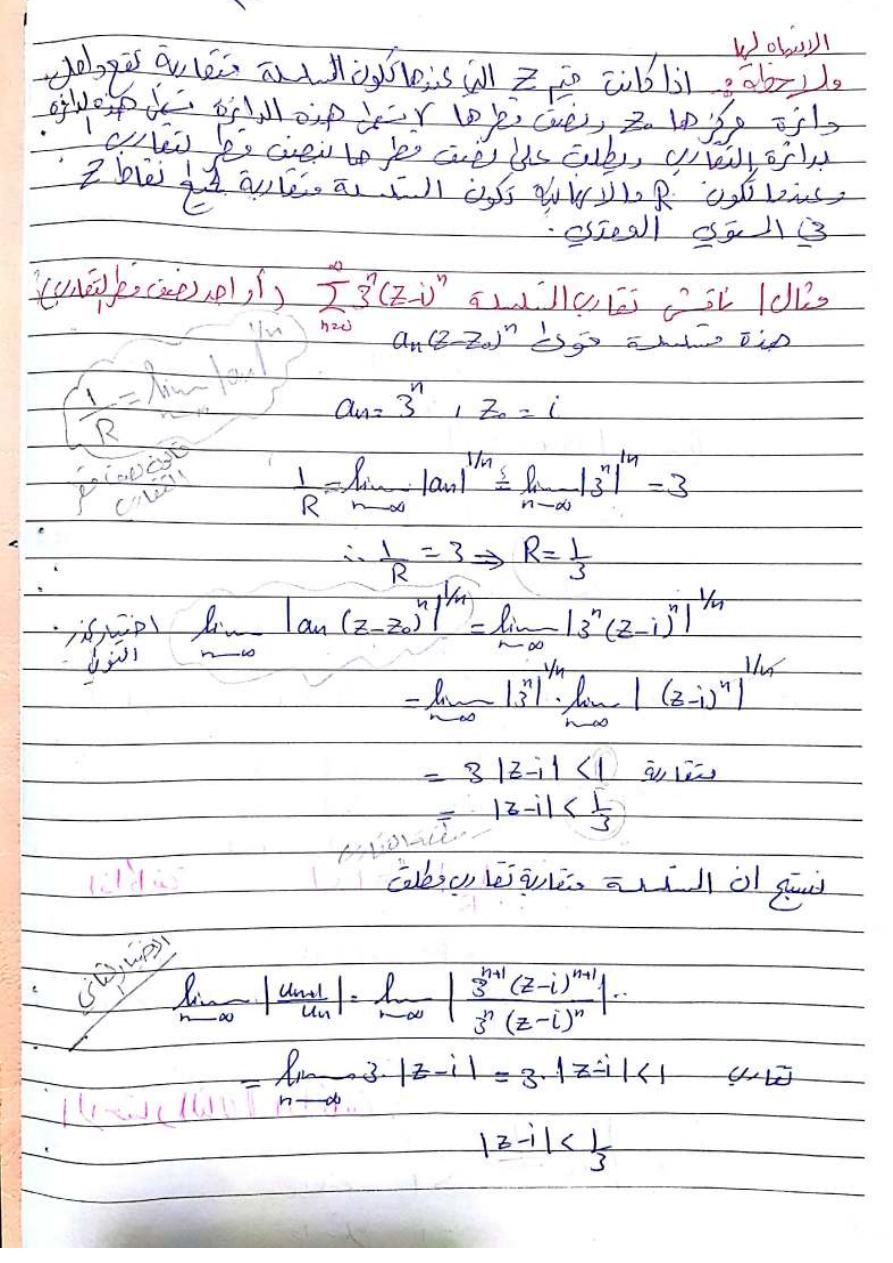 الانتباه لها
ملاحظة: اذا كانت قيم Z التي عندها تكون السلسلة متقاربة تقع داخل
دائرة مركزها Z₀ ونصف قطرها R تسمى هذه الدائرة
بدائرة التقارب ويطلق على نصف قطرها بنصف قطر التقارب
وعندما تكون R مالانهاية تكون السلسلة متقاربة لجميع نقاط Z
في المستوي العقدي.
مثال/ ناقش تقارب السلسلة ∑_{n=0}^{∞} 3^n (z-i)^n (أو اجد نصف قطر التقارب)
هذه متسلسلة قوى a_n (z-z₀)^n
1/R = lim_{n→∞} |a_n|^{1/n}
قانون نصف قطر التقارب
a_n = 3^n , z₀ = i
1/R = lim_{n→∞} |a_n|^{1/n} = lim_{n→∞} |3^n|^{1/n} = 3
∴ 1/R = 3 ⇒ R = 1/3
lim_{n→∞} |a_n (z-z₀)^n|^{1/n} = lim_{n→∞} |3^n (z-i)^n|^{1/n}
= lim_{n→∞} |3^n|^{1/n} · lim_{n→∞} |(z-i)^n|^{1/n}
= 3 |z-i| < 1 متقاربة
= |z-i| < 1/3
نستنتج ان السلسلة متقاربة تقارب مطلق
lim_{n→∞} |u_{n+1}/u_n| = lim_{n→∞} |3^{n+1} (z-i)^{n+1} / 3^n (z-i)^n|
= lim_{n→∞} 3·|z-i| = 3·|z-i| < 1 تقارب
|z-i| < 1/3